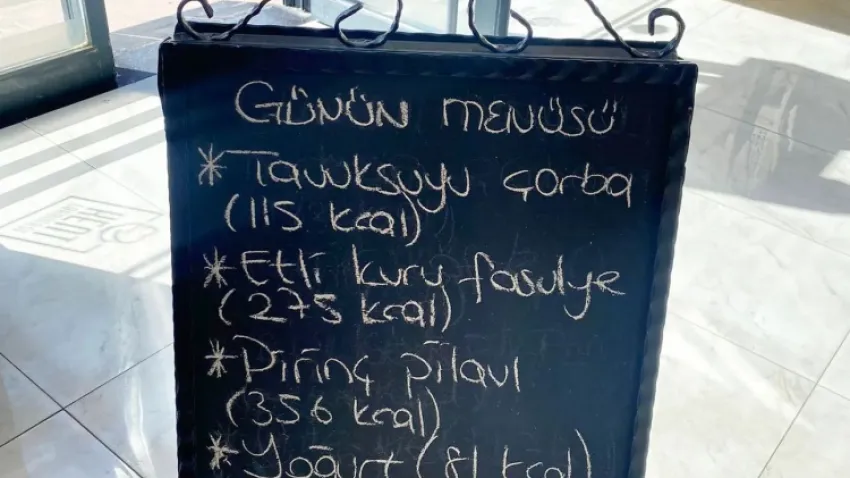 GÜNÜN MENÜSÜ
* Tavuksuyu Çorba
(115 kcal)
* Etli kuru fasulye
(275 kcal)
* Pirinç pilavı
(356 kcal)
* Yoğurt (81 kcal)